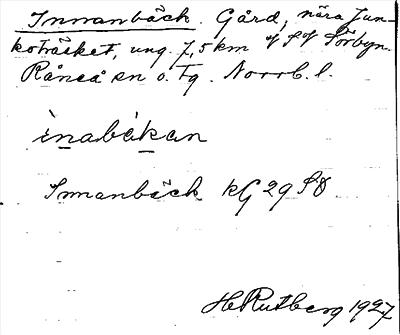 Innanbäck. Gård, nära Jun-
koträsket, ung. 7,5 km Sörbyn.
Råneå sn o. tg. Norrb. l.
inabäkan
Innanbäck kG 29 SO
H Rutberg 1927